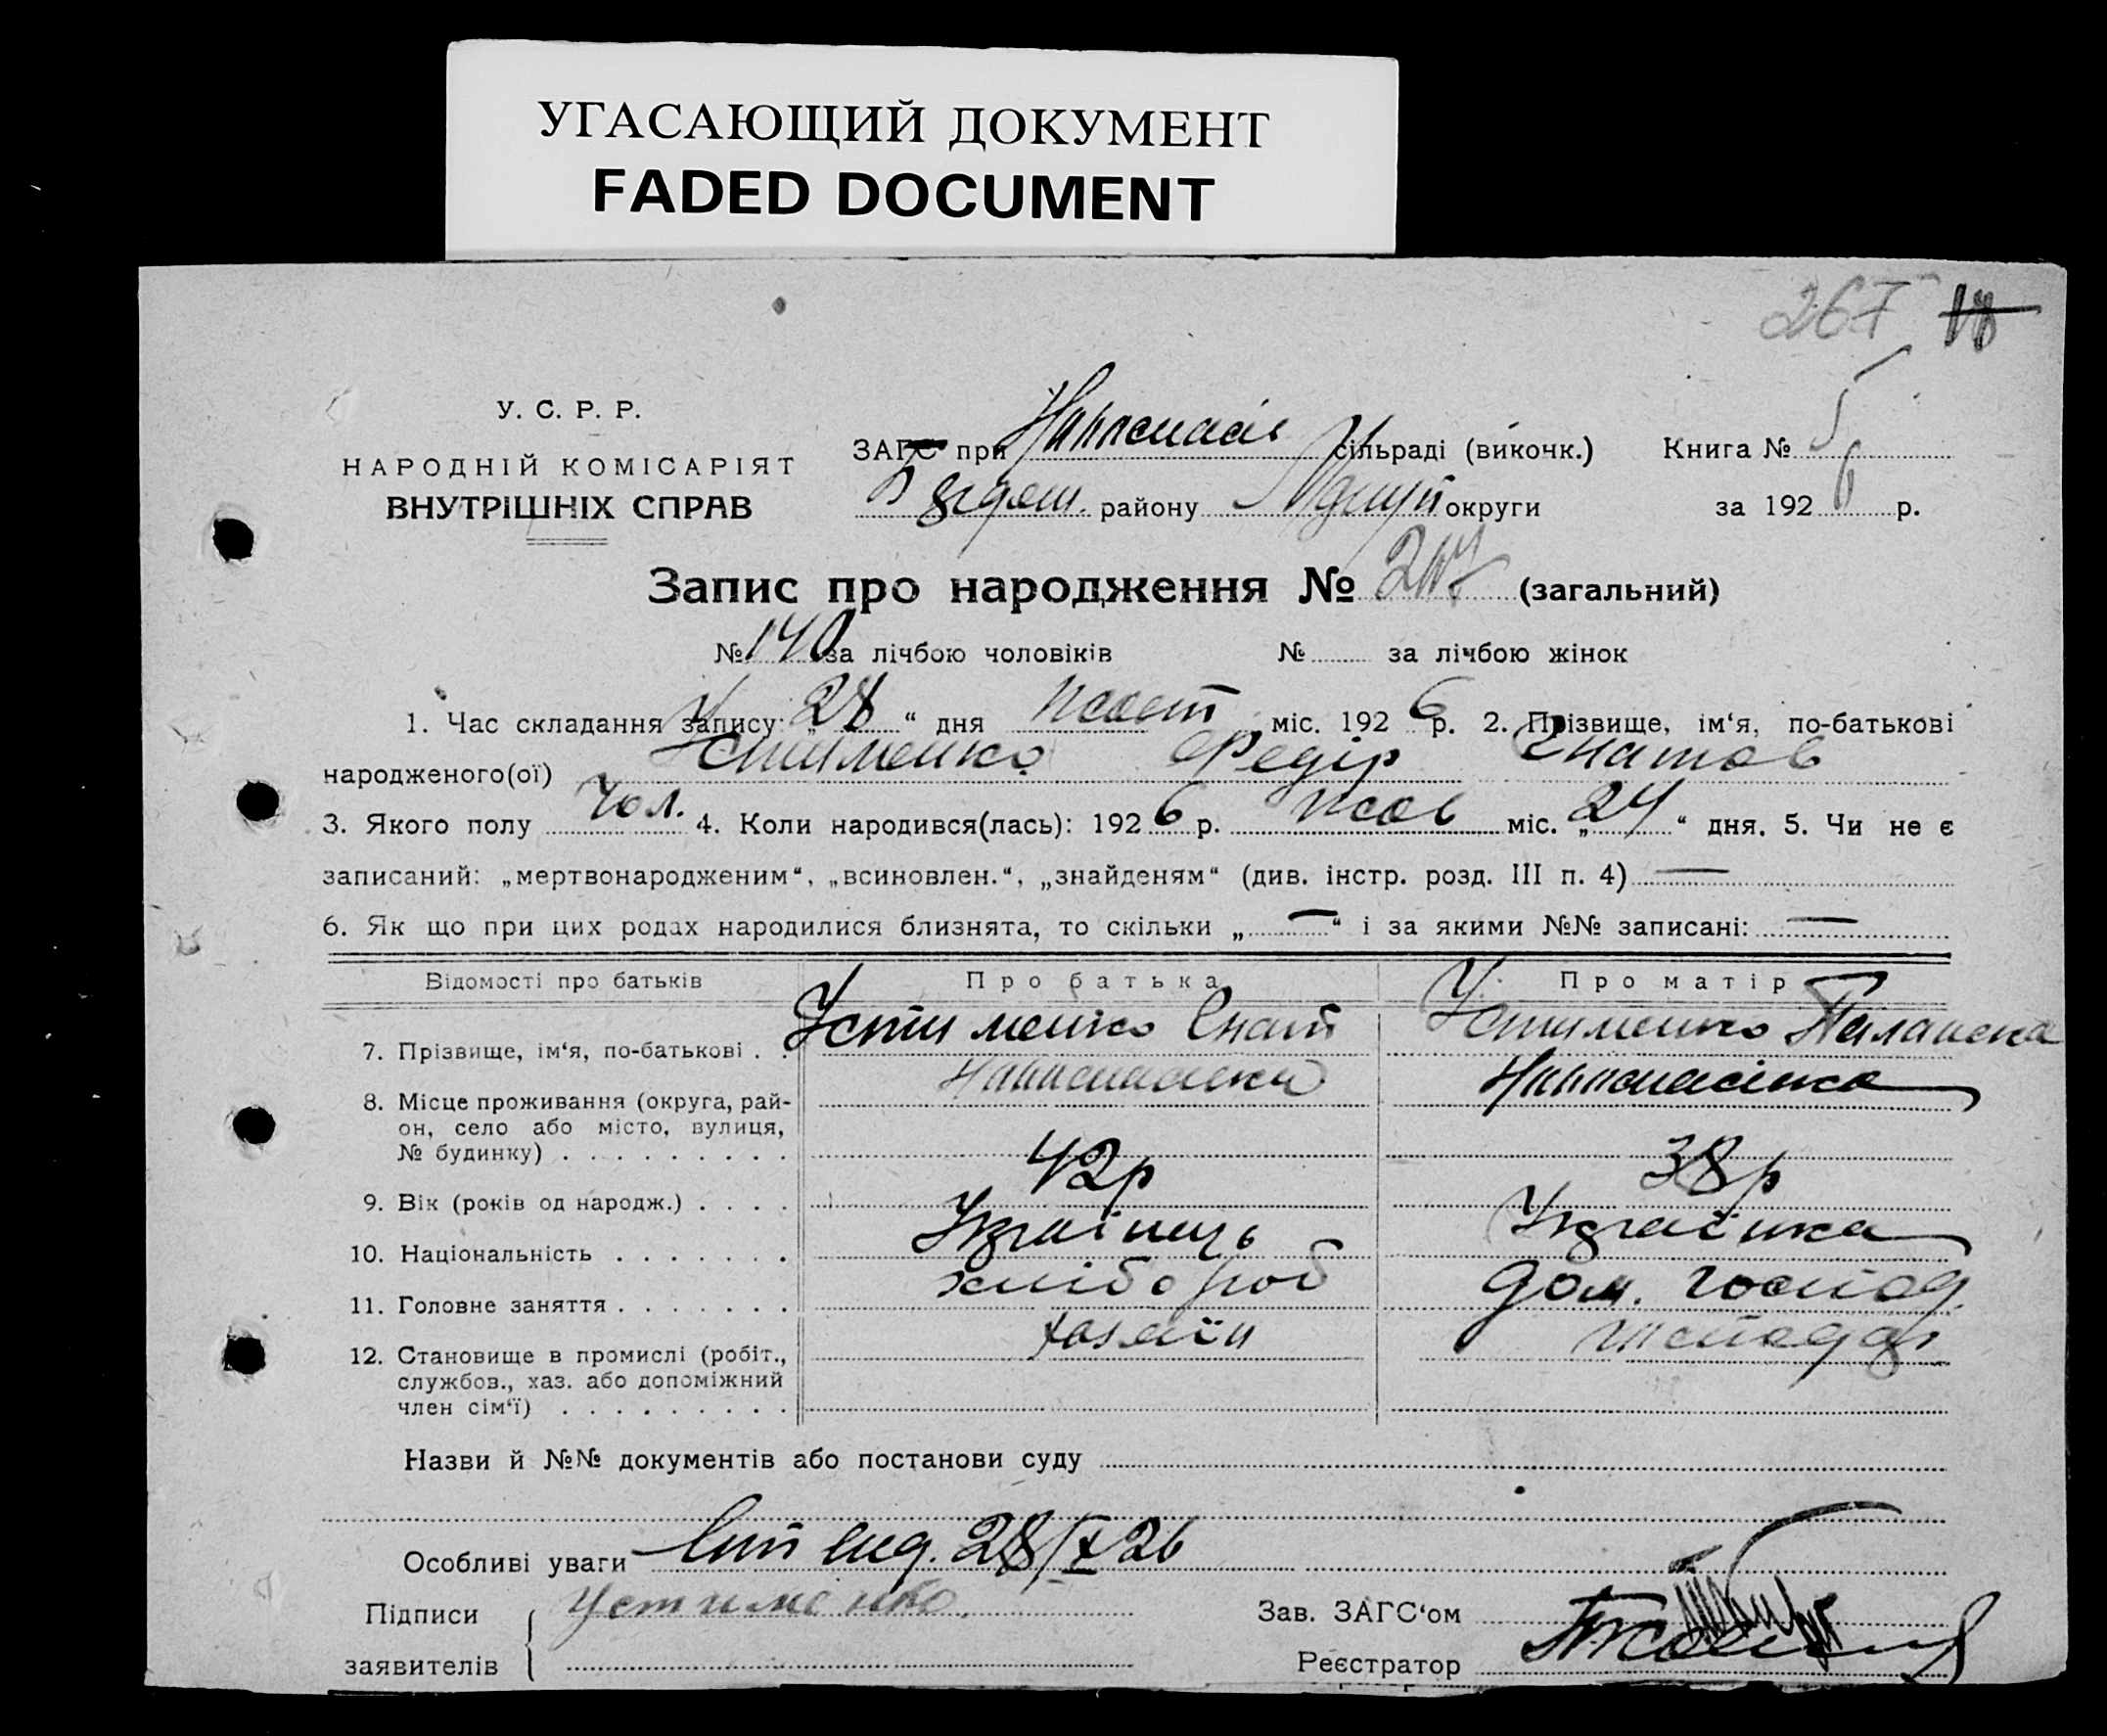 УГАСАЮЩИЙ ДОКУМЕНТ
FADED DOCUMENT
267 18
У. С. Р. Р.
НАРОДНІЙ КОМІСАРІЯТ
ВНУТРІШНІХ СПРАВ
ЗАГС при сільраді (викочк.) Книга № 5
району округи за 1926 р.
Запис про народження № 267 (загальний)
№ 140 за лічбою чоловіків № за лічбою жінок
1. Час складання запису: „ 28 “ дня жовт міс. 1926 р. 2. Прізвище, ім‘я, по-батькові
народженого(ої) Устименко Федір Гнатов
3. Якого полу чол. 4. Коли народився(лась): 1926 р. жов міс. „ 24 “ дня. 5. Чи не є
записаний: „мертвонародженим“, „всиновлен.“, „знайденям“ (див. інстр. розд. III п. 4) —
6. Як що при цих родах народилися близнята, то скільки „ — “ і за якими №№ записані: —
Відомості про батьків Про батька Про матір
7. Прізвище, ім‘я, по-батькові . . Устименко Гнат Устименко Палажка
8. Місце проживання (округа, рай-
он, село або місто, вулиця,
№ будинку) . . . . . . . . .
9. Вік (років од народж.) . . . . 42р 38р
10. Національність . . . . . . . Українець Українка
11. Головне заняття . . . . . . . хлібороб дом. господ.
12. Становище в промислі (робіт., хазяїн
службов., хаз. або допоміжний
член сім‘ї) . . . . . . . . .
Назви й №№ документів або постанови суду
Особливі уваги 28/X 26
Підписи Устименко.
заявителів
Зав. ЗАГС‘ом
Реєстратор